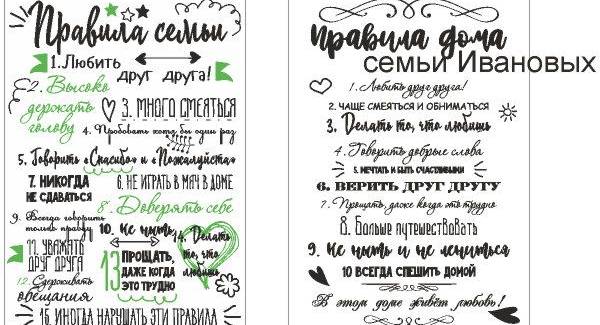 Правила семьи
1. Любить друг друга!
2. Высоко
держать
голову
3. МНОГО СМЕЯТЬСЯ
4. Пробовать хотя бы один раз
5. Говорить «Спасибо» и «Пожалуйста»
7. НИКОГДА
НЕ СДАВАТЬСЯ
6. НЕ ИГРАТЬ В МЯЧ В ДОМЕ
8. Доверять себе
9. Всегда говорить
только правду
10. Не ныть
11. УВАЖАТЬ
ДРУГ ДРУГА
12. Сдерживать
обещания
13 ПРОЩАТЬ,
ДАЖЕ КОГДА
ЭТО ТРУДНО
14. Делать
то, что
любишь
15. ИНОГДА НАРУШАТЬ ЭТИ ПРАВИЛА
правила дома
семьи Ивановых
1. Любить друг друга!
2. ЧАЩЕ СМЕЯТЬСЯ И ОБНИМАТЬСЯ
3. Делать то, что любишь
4. Говорить добрые слова
5. МЕЧТАТЬ И БЫТЬ СЧАСТЛИВЫМИ
6. ВЕРИТЬ ДРУГ ДРУГУ
7. Прощать, даже когда это трудно
8. Больше путешествовать
9. Не ныть и не лениться
10 ВСЕГДА СПЕШИТЬ ДОМОЙ
В этом доме живёт любовь!